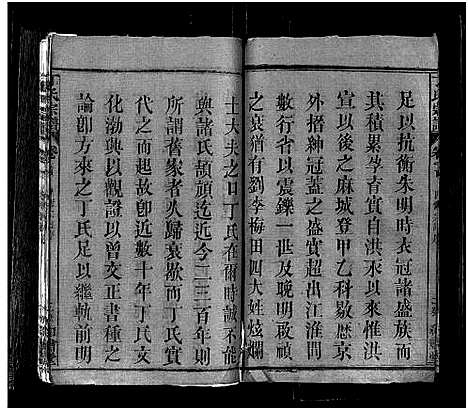 足以抗衡朱明時衣冠諸盛族而
其積累孕育自洪永以來惟洪
宣以後之麻城登甲乙科歇歷京
外搢紳冠蓋之盛實超出江淮間
數行省以震鑠一世及晚明啟禎
之衰猶有劉李梅田四大姓炫爛
士大夫之口丁氏在爾時誠不能
與諸氏頡頏迄近今二三百年則
所謂舊家者久歸衰歇而丁氏實
代之而起故即近數十年丁氏文
化勃興以觀證以曾文正書種之
論即方來之丁氏足以繼軌前明